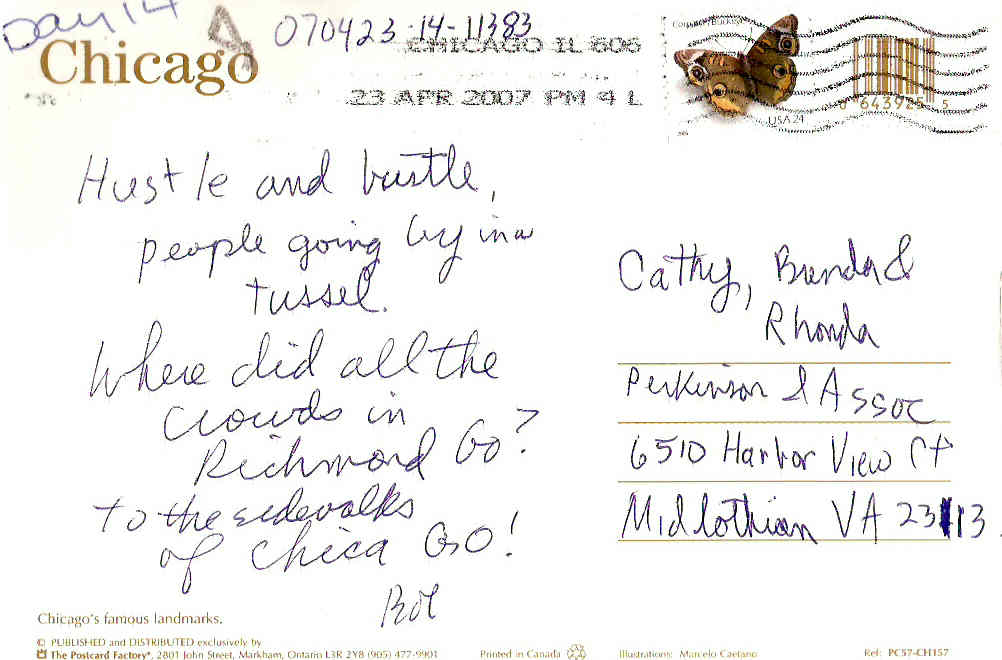 Day 14
Chicago
070423-14-11383
CHICAGO IL 606
23 APR 2007 PM 4 L
Common Buckeye
USA 24
0 643925 5
Hustle and bustle,
people going by in a
tussel.
Where did all the
crowds in
Richmond Go?
to the sidewalks
of Chica GO!
Cathy, Brenda &
Rhonda
Perkinson & Assoc
6510 Harbor View Ct
Midlothian VA 23113
Chicago's famous landmarks.
© PUBLISHED and DISTRIBUTED exclusively by
The Postcard Factory®, 2801 John Street, Markham, Ontario L3R 2Y8 (905) 477-9901
Printed in Canada
Illustrations: Marcelo Caetano
Ref: PC57-CH157